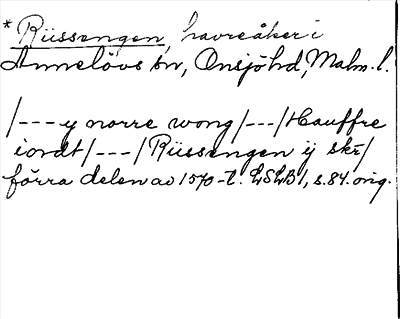 * Rüssengen, havreåker i
Annelövs sn, Onsjöhd, Malm. l.
/---y norre wong/---/Hauffre
iordt/---/Rüssengen ij skr/
förra delen av 1570-t. LSLB 1, s. 84. orig.